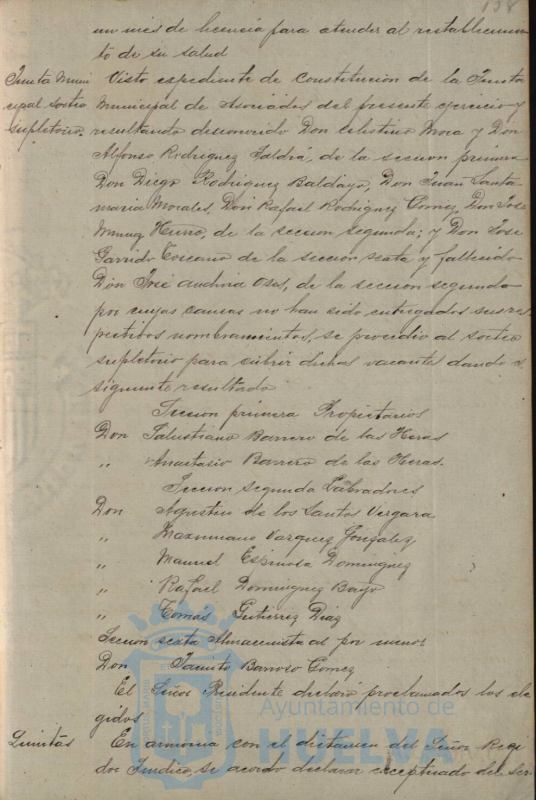 138
un mes de licencia para atender al restablecimien
to de su salud
Junta Muni
cipal sorteo
supletorio.
Visto expediente de Constitución de la Junta
Municipal de Asociados del presente ejercicio y
resultando desconocido Don Celestino Mora y Don
Alfonso Rodriguez Saldrá, de la seccion primera
Don Diego Rodriguez Baldayo, Don Juan Santa
maria Morales, Don Rafael Rodriguez Gomez, Don Jose
de la seccion segunda; y Don Jose
Garrido Toscano de la seccion sexta y fallecido
Don José de la seccion segunda
por cuyas causas no han sido entregados sus res
pectivos nombramientos, se procedió al sorteo
supletorio para cubrir dichas vacantes dando el
siguiente resultado
Seccion primera Propietarios
Don Salustiano Barrero de las Heras
" Anastasio Barrero de las Heras.
Seccion segunda Labradores
Don Agustin de los Santos Vergara
" Maximiano Vazquez Gonzalez
" Manuel Espinosa Dominguez
" Rafael Dominguez Bayo
" Tomas Gutierrez Diaz
Seccion sexta Almacenista al por menor
Don Jacinto Barroso Gomez
El Señor Presidente declaró proclamados los ele
gidos
Quintas
En armonia con el dictamen del Señor Regi
dor Sindico, se acordo declarar exceptuado del Ser
Ayuntamiento de
HUELVA